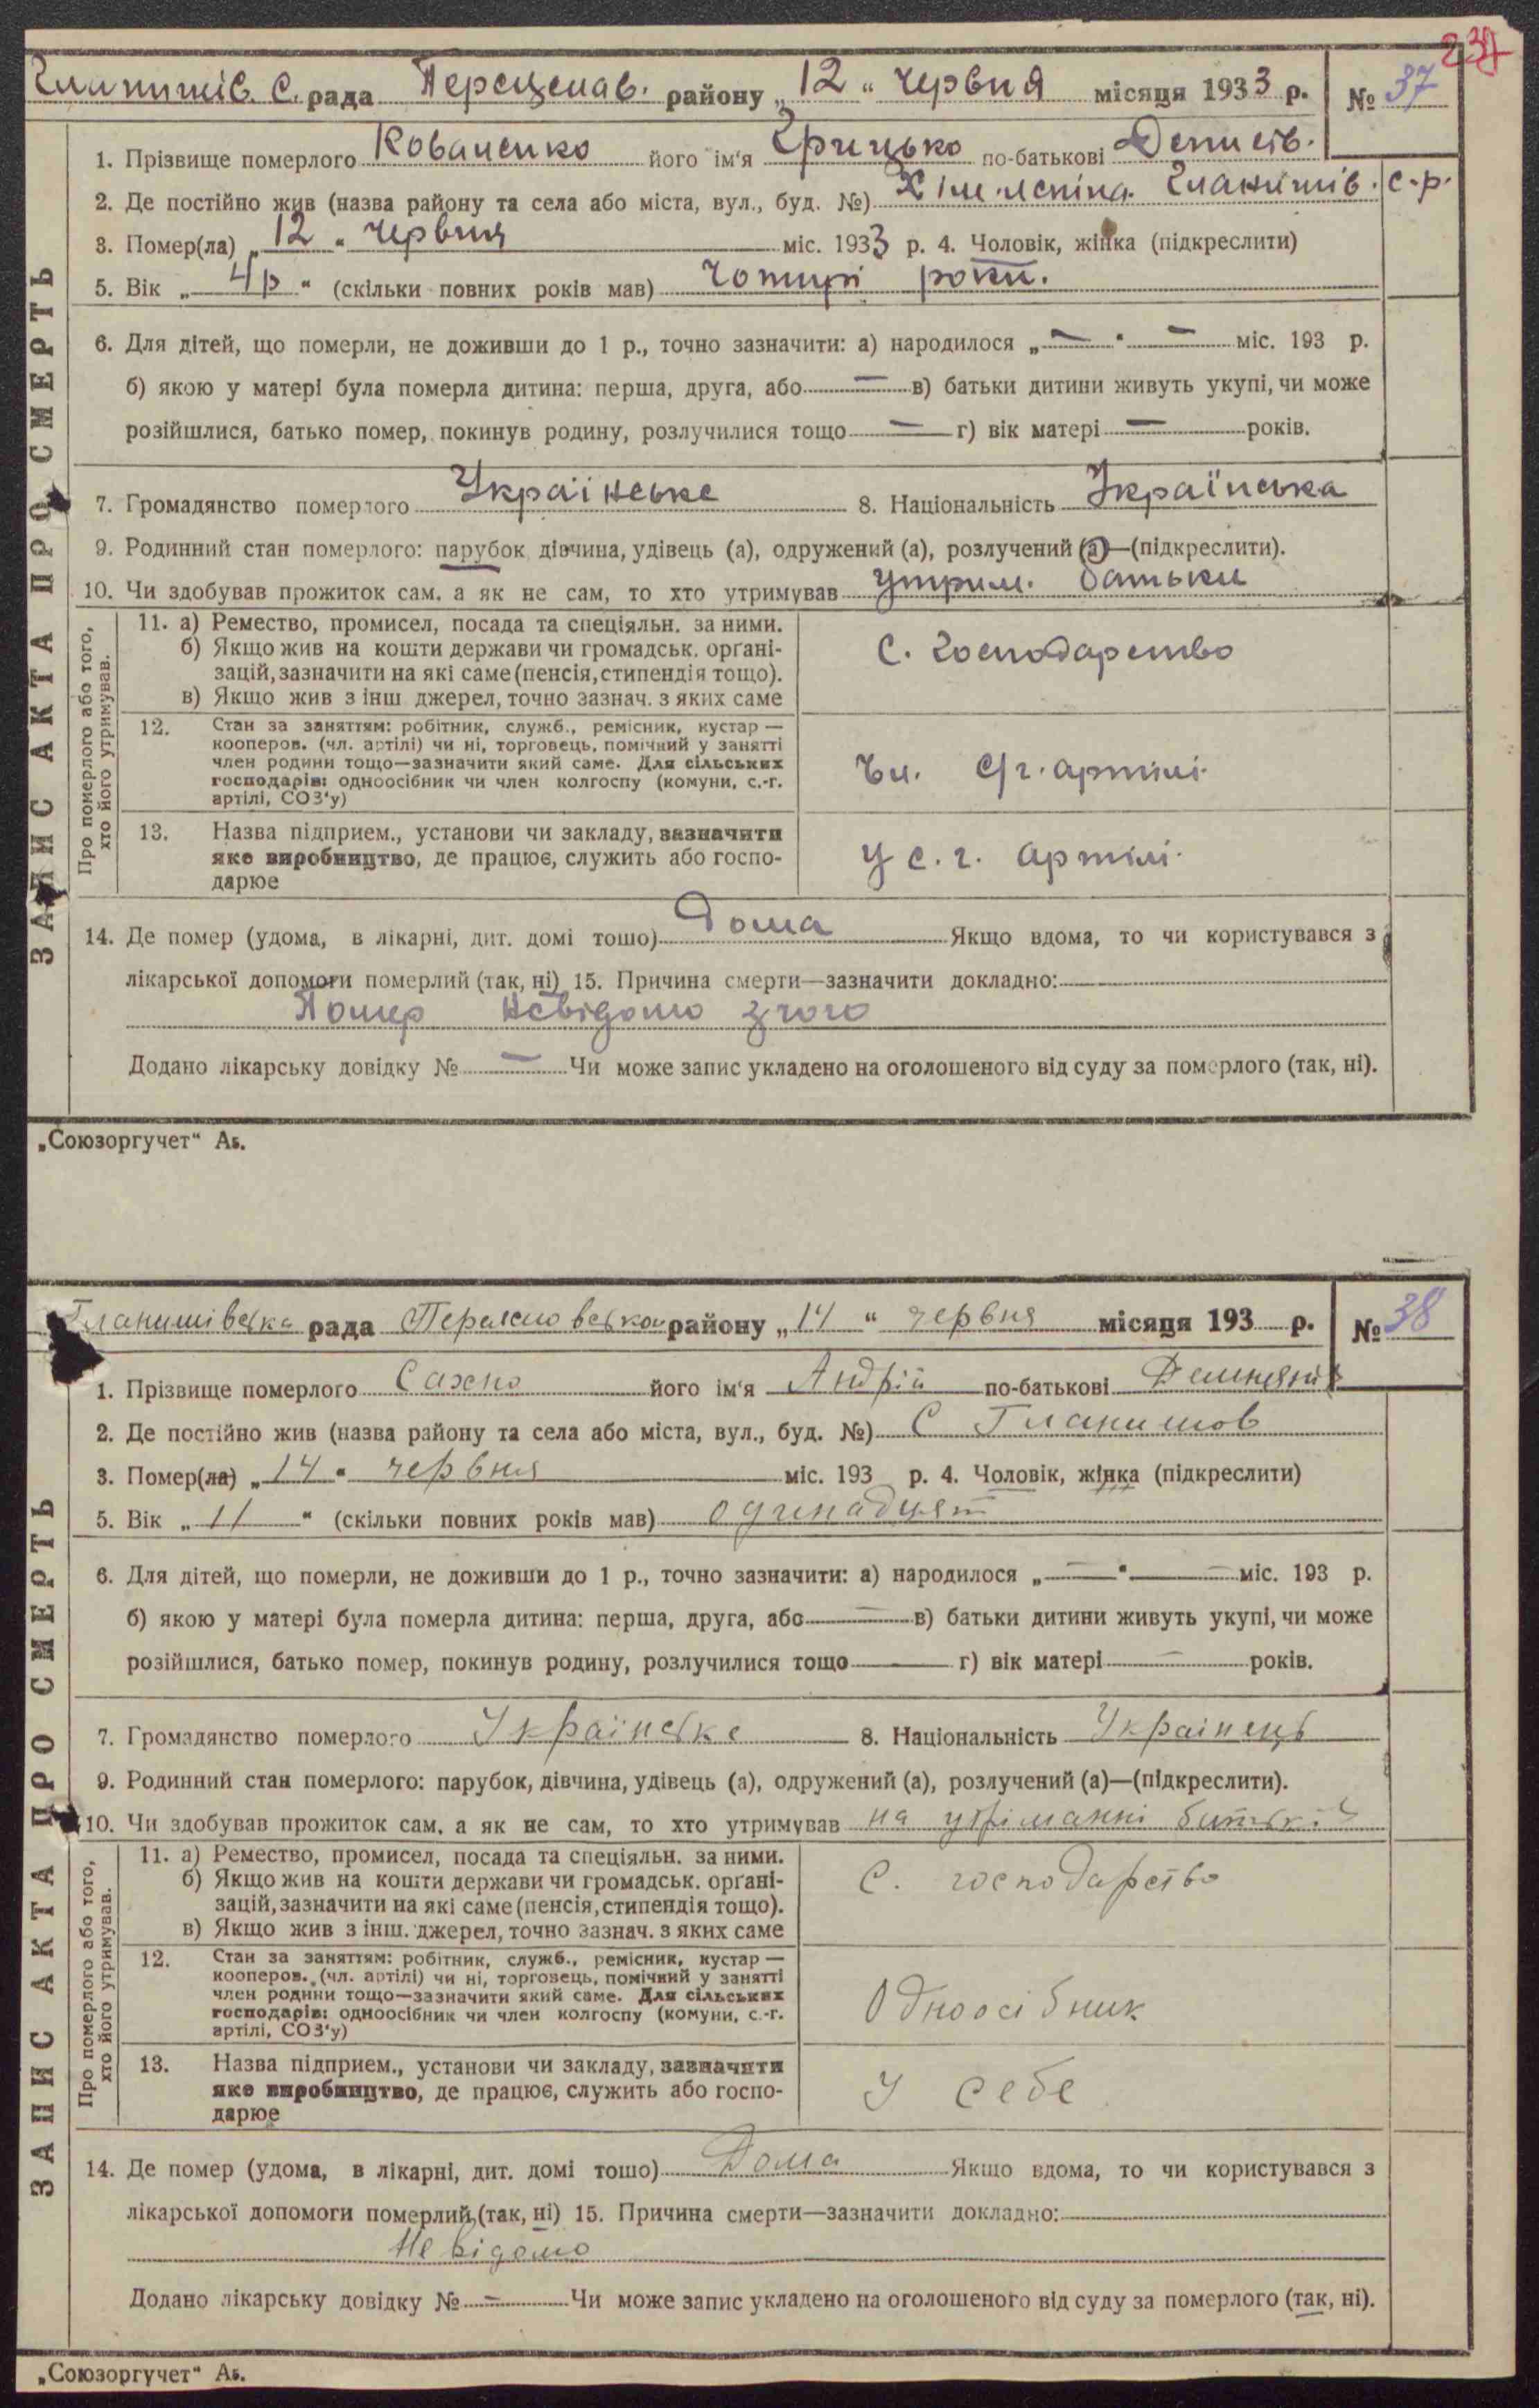 237
Гланишів. С. рада Переяслав. району „12“ червня місяця 1933 р. № 37
1. Прізвище померлого Коваленко його ім'я Грицько по-батькові Денисів.
2. Де постійно жив (назва району та села або міста, вул., буд. №) Гланишів. с-р.
3. Помер(ла) „12“ червня міс. 1933 р. 4. Чоловік, жінка (підкреслити)
5. Вік „4р“ (скільки повних років мав) Чотирі роки.
6. Для дітей, що померли, не доживши до 1 р., точно зазначити: а) народилося „—“ — міс. 193 р.
б) якою у матері була померла дитина: перша, друга, або — в) батьки дитини живуть укупі, чи може
розійшлися, батько помер, покинув родину, розлучилися тощо — г) вік матері — років.
7. Громадянство померлого Українське 8. Національність Українська
9. Родинний стан померлого: парубок, дівчина, удівець (а), одружений (а), розлучений (а)—(підкреслити).
10. Чи здобував прожиток сам, а як не сам, то хто утримував утрим. батьки
Про померлого або того, хто його утримував.
11. а) Ремество, промисел, посада та спеціяльн. за ними.
б) Якщо жив на кошти держави чи громадськ. орґані-
зацій, зазначити на які саме (пенсія, стипендія тощо).
в) Якщо жив з інш джерел, точно зазнач. з яких саме
С. господарство
12. Стан за заняттям: робітник, служб., ремісник, кустар —
кооперов. (чл. артілі) чи ні, торговець, помічний у занятті
член родини тощо—зазначити який саме. Для сільських
господарів: одноосібник чи член колгоспу (комуни, с.-г.
артілі, СОЗ'у)
Чл. с/г. артілі.
13. Назва підприєм., установи чи закладу, зазначити
яке виробництво, де працює, служить або госпо-
дарює
У с. г. артілі.
14. Де помер (удома, в лікарні, дит. домі тошо) Дома Якщо вдома, то чи користувався з
лікарської допомоги померлий (так, ні) 15. Причина смерти—зазначити докладно:
Помер невідомо з чого
Додано лікарську довідку № — Чи може запис укладено на оголошеного від суду за померлого (так, ні).
ЗАПИС АКТА ПРО СМЕРТЬ
„Союзоргучет“ Аз.
Гланишівська рада Переяславської району „14“ червня місяця 193 р. № 38
1. Прізвище померлого Сахно його ім'я Андрій по-батькові
2. Де постійно жив (назва району та села або міста, вул., буд. №) С Гланишов
3. Помер(ла) „14“ червня міс. 193 р. 4. Чоловік, жінка (підкреслити)
5. Вік „11“ (скільки повних років мав) одинадцят
6. Для дітей, що померли, не доживши до 1 р., точно зазначити: а) народилося „—“ — міс. 193 р.
б) якою у матері була померла дитина: перша, друга, або — в) батьки дитини живуть укупі, чи може
розійшлися, батько помер, покинув родину, розлучилися тощо — г) вік матері — років.
7. Громадянство померлого Українське 8. Національність Українець
9. Родинний стан померлого: парубок, дівчина, удівець (а), одружений (а), розлучений (а)—(підкреслити).
10. Чи здобував прожиток сам, а як не сам, то хто утримував на утріманні батьків
Про померлого або того, хто його утримував.
11. а) Ремество, промисел, посада та спеціяльн. за ними.
б) Якщо жив на кошти держави чи громадськ. орґані-
зацій, зазначити на які саме (пенсія, стипендія тощо).
в) Якщо жив з інш. джерел, точно зазнач. з яких саме
С. господарство
12. Стан за заняттям: робітник, служб., ремісник, кустар —
кооперов. (чл. артілі) чи ні, торговець, помічний у занятті
член родини тощо—зазначити який саме. Для сільських
господарів: одноосібник чи член колгоспу (комуни, с.-г.
артілі, СОЗ'у)
Одноосібник
13. Назва підприєм., установи чи закладу, зазначити
яке виробництво, де працює, служить або госпо-
дарює
У себе
14. Де помер (удома, в лікарні, дит. домі тошо) Дома Якщо вдома, то чи користувався з
лікарської допомоги померлий (так, ні) 15. Причина смерти—зазначити докладно:
Невідомо
Додано лікарську довідку № — Чи може запис укладено на оголошеного від суду за померлого (так, ні).
ЗАПИС АКТА ПРО СМЕРТЬ
„Союзоргучет“ Аз.